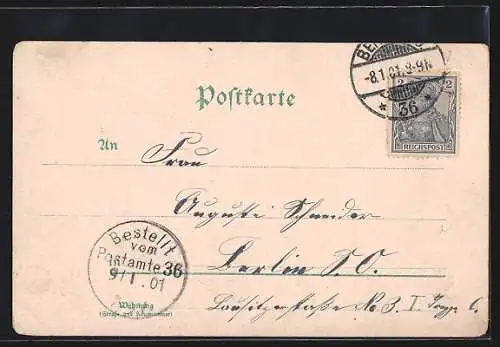 BE
-8.1.01.8-9N.
* 36 *
2 2
REICHSPOST
Postkarte
An
Frau
Auguste Schneider
Berlin S.O.
Lausitzerstraße No 3. I. Trpp. l.
Bestellt
vom
Postamte 36
9/1.01
Wohnung
(Straße und Hausnummer)